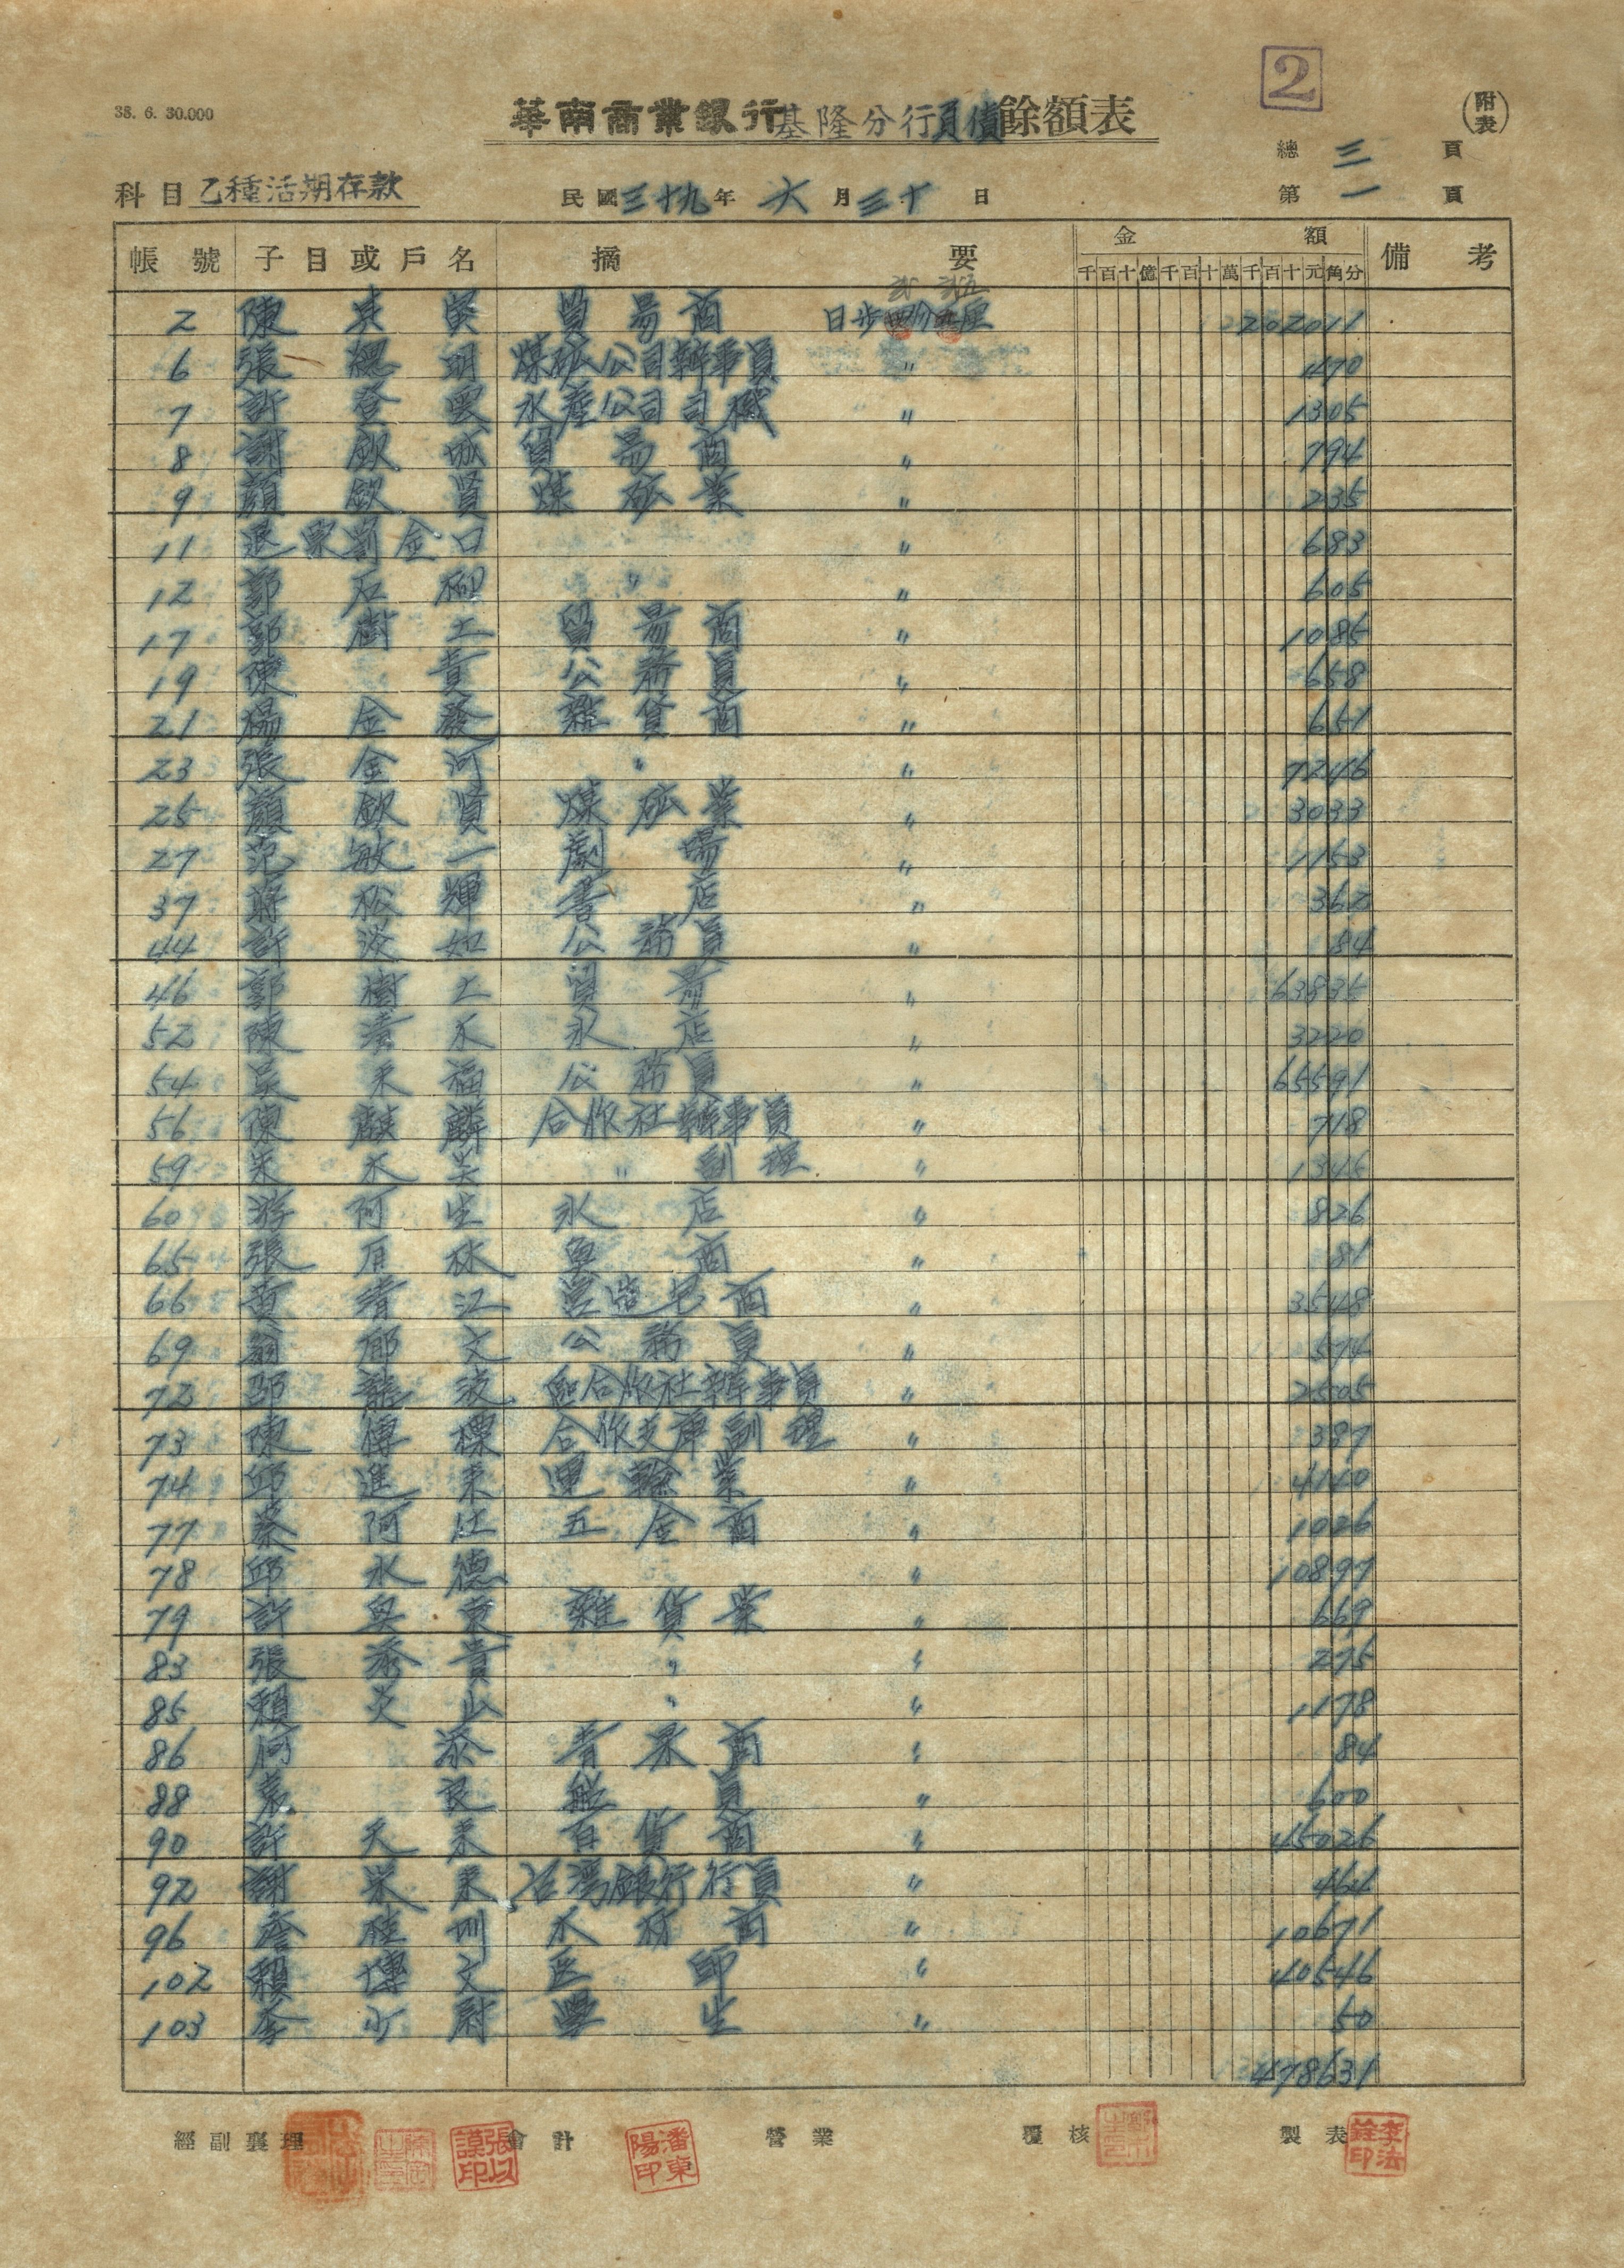 38. 6. 30.000
2
華南商業銀行基隆分行負債餘額表
(附表)
總 三 頁
科目 乙種活期存款 民國三十九年 六 月 三十 日 第 一 頁
帳號 子目或戶名 摘要 金額 備考
千百十億千百十萬千百十元角分
2 陳 貿易商 日步 分 厘 202011
6 張 煤砿公司辦事員 〃 470
7 許登 水產公司司機 〃 1305
8 謝欽城 貿易商 〃 794
9 顏欽賢 煤砿業 〃 235
11 退票 金口 〃 683
12 郭石 〃 〃 605
17 郭樹土 貿易商 〃 1086
19 陳貴 公務員 〃 658
21 楊金發 雜貨商 〃 651
23 張金河 〃 〃 7246
25 顏欽賢 煤砿業 〃 3033
27 范敏一 劇場 〃 1153
37 蔣松輝 書店 〃 362
44 許 如 公務員 〃 84
46 郭樹土 貿易 〃 63835
52 陳清水 氷店 〃 3220
54 吳来福 公務員 〃 65591
56 陳麒麟 合作社辦事員 〃 718
59 朱水 〃 副理 〃 1345
60 游阿生 氷店 〃 826
65 張 林 魚商 〃 81
66 黃清江 商 〃 3548
69 翁郁文 公務員 〃 574
72 邵龍波 合作社辦事員 〃 2505
73 陳傳標 合作支庫副理 〃 397
74 邱進来 運輸業 〃 4140
77 蔡阿江 五金商 〃 1026
78 邱永德 〃 10897
79 許 東 雜貨業 〃 669
83 張添貴 〃 〃 275
85 賴火山 〃 〃 1178
86 何添 青果商 〃 84
88 袁良 船員 〃 600
90 許天来 百貨商 〃 45026
92 謝栄来 台灣銀行行員 〃 461
96 詹 圳 木材商 〃 10671
102 賴傳文 医師 〃 40546
103 李少尉 學生 〃 50
478631
經副襄理 會計 營業 覆核 製表
張以謨印
潘東陽印
李法銓印